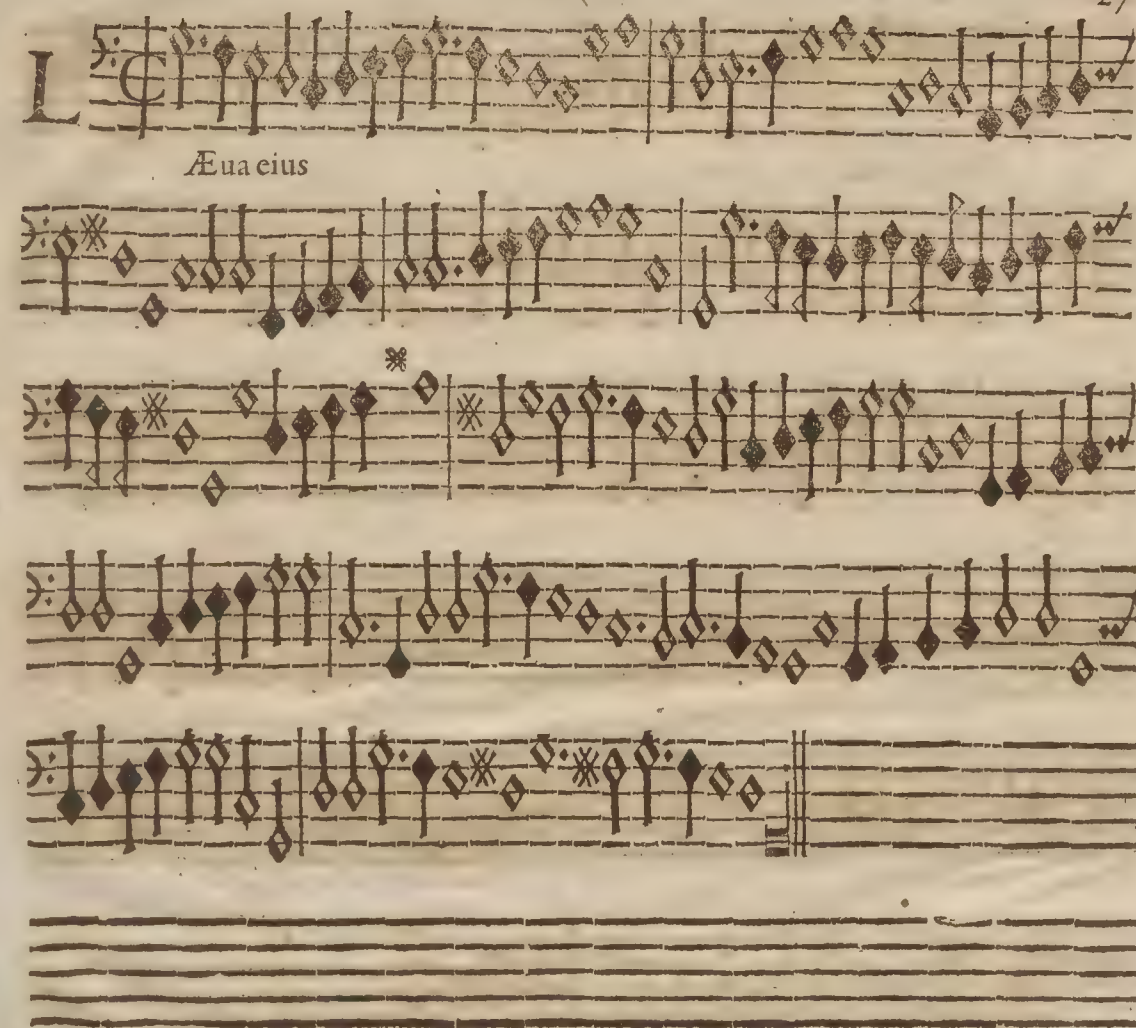 L
Æua eius